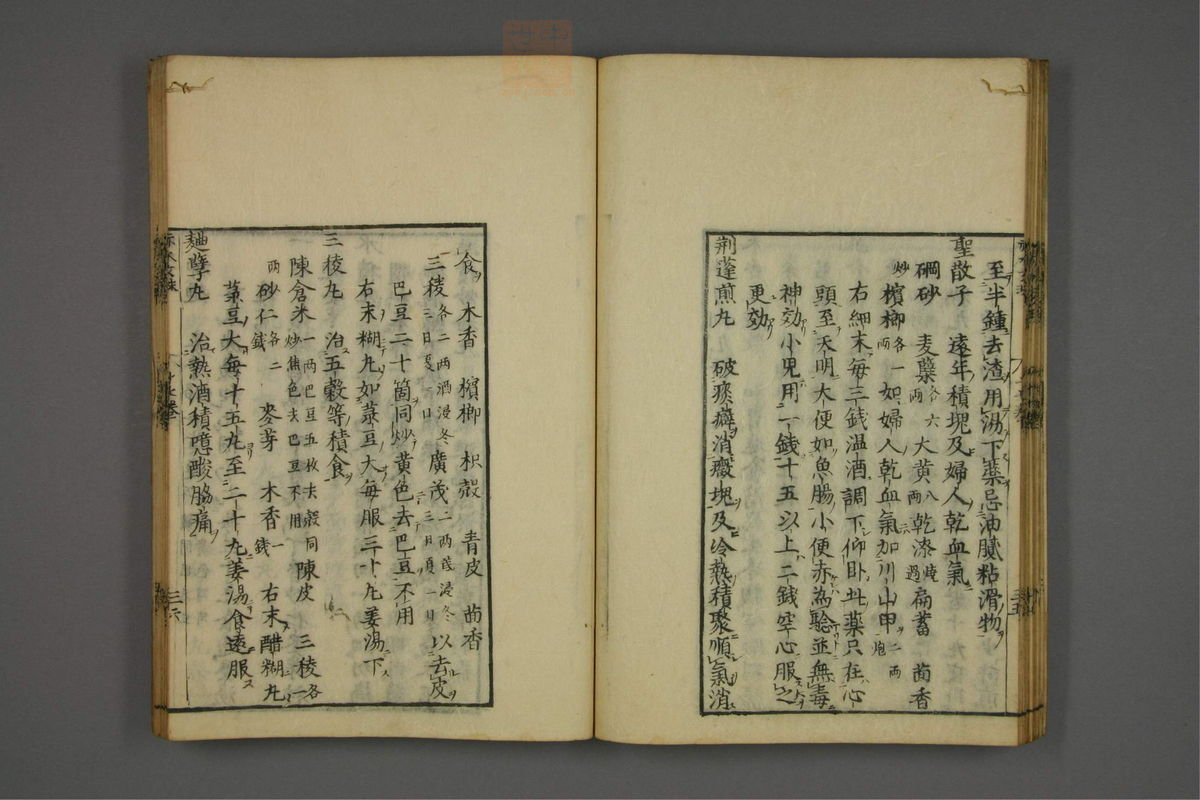 至半鍾去渣用湯下藥忌油膩粘滑物
聖散子　遠年積塊及婦人乾血氣
硇砂　麦蘗各六兩　大黄八兩　乾漆燒過　扁蓄　茴香
炒　檳榔各一兩　如婦人乾血氣加川山甲二兩炮
右細末每三錢温酒調下仰卧此藥只在心
頭至天明大便如魚腸小便赤為驗並無毒
神効小兒用一錢十五以上二錢空心服之
更効
荆蓬煎丸　破痰癖消癥塊及冷熱積聚順氣消
食　木香　檳榔　枳殼　青皮　茴香
三稜各二兩酒浸冬三日夏一日　廣茂二兩醋浸冬三日夏一日　以去皮
巴豆二十箇同炒黄色去巴豆不用
右末糊丸如菉豆大每服三十丸姜湯下
三稜丸　治五穀等積食
陳倉米一兩巴豆五枚去殼同炒焦色去巴豆不用　陳皮　三稜各一
兩　砂仁各二錢　麥芽　木香一錢　右末醋糊丸
菉豆大每十五丸至二十丸姜湯食遠服
麯孽丸　治熱酒積噫酸脇痛
三六